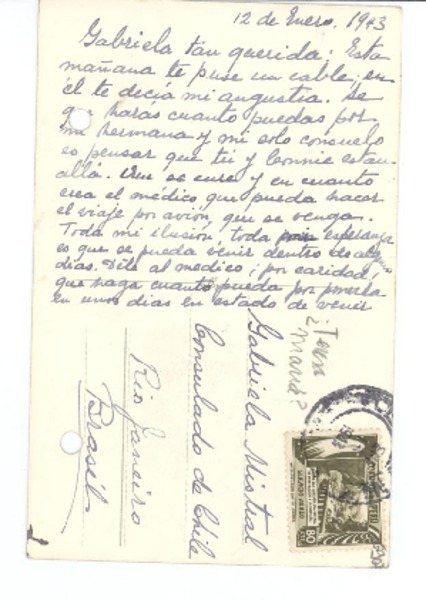 12 de Enero, 1943
Gabriela tan querida: Esta
mañana te puse un cable, en
él te decía mi angustia. Se
que harás cuanto puedas por
mi hermana y mi solo consuelo
es pensar que tú y Connie están
allá. Que se cure y en cuanto
crea el médico, que pueda hacer
el viaje por avión, que se venga.
Toda mi ilusión toda mi esperanza
es que se pueda venir dentro de algunos
días. Dile al medico, por caridad,
que haga cuanto pueda por ponerla
en unos días en estado de venir
Gabriela Mistral
Consulado de Chile
Rio Janeiro
Brasil
¿Tern
80